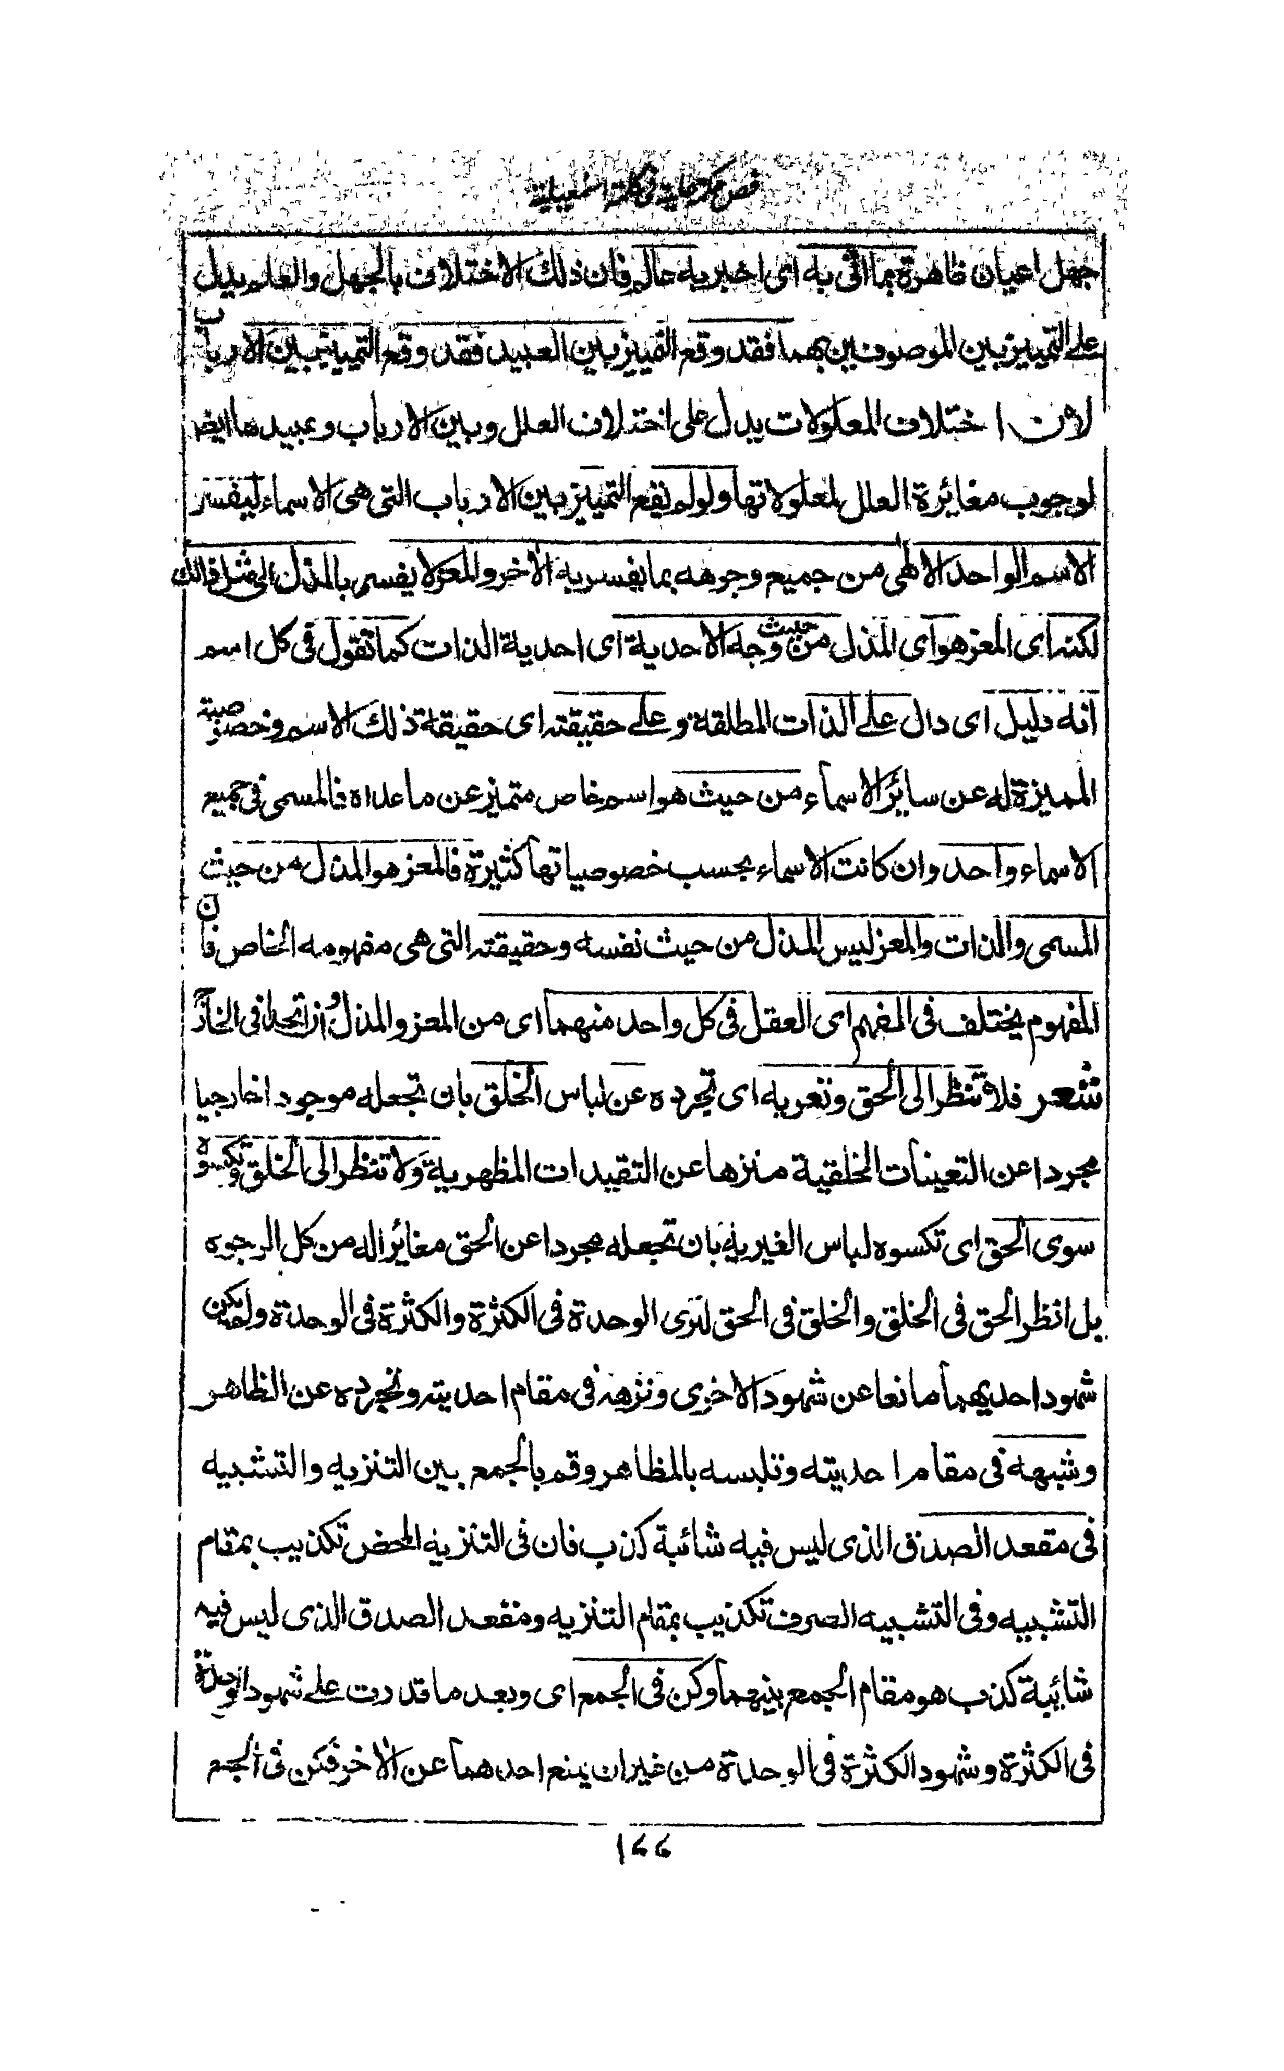 فص حكمة علية في كلمة اسمعيلية
جهل اعيان ظاهرة بما اتى به اى اخبر به حاله فان ذلك الاختلاف بالجهل والعلم يدل
على التمييز بين الموصوفين بهما فقد وقع التمييز بين العبيد فقد وقع التمييز بين الارباب
لان اختلاف المعلولات يدل على اختلاف العلل وبين الارباب وعبيدها ايضا
لوجوب مغائرة العلل لمعلولاتها ولو لم يقع التمييز بين الارباب التى هى الاسماء ليفسر
الاسم الواحد الالهى من جميع وجوهه بما يفسر به الاخر والمعز لا يفسر بالمذل الى مثل ذلك
لكنه اى المعز هو اى المذل من حيث وجه الاحدية اى احدية الذات كما تقول فى كل اسم
انه دليل اى دال على الذات المطلقة و على حقيقته اى حقيقة ذلك الاسم وخصوصيته
المميزة له عن سائر الاسماء من حيث هو اسم خاص متميز عن ما عداه فالمسمى فى جميع
الاسماء واحد وان كانت الاسماء بحسب خصوصياتها كثيرة فالمعز هو المذل من حيث
المسمى والذات والمعز ليس المذل من حيث نفسه وحقيقته التى هى مفهومه الخاص فان
المفهوم يختلف فى المفهم اى العقل فى كل واحد منهما اى من المعز والمذل وان اتحدا فى الخارج
شعر فلا تنظر الى الحق وتعريه اى تجرده عن لباس الخلق بان تجعله موجودا خارجيا
مجردا عن التعينات الخلقية منزها عن التقيدات المظهرية ولا تنظر الى الخلق وتكسوه
سوى الحق اى تكسوه لباس الغيرية بان تجعله مجردا عن الحق مغائرا له من كل الوجوه
بل انظر الحق فى الخلق والخلق فى الحق لترى الوحدة فى الكثرة والكثرة فى الوحدة ولم يكن
شهود احديهما مانعا عن شهود الاخرى ونزهه فى مقام احديته وتجرده عن الظاهر
وشبهه فى مقام احديته وتلبسه بالمظاهر وقم بالجمع بين التنزيه والتشبيه
فى مقعد الصدق الذى ليس فيه شائبة كذب فان فى التنزيه المحض تكذيب بمقام
التشبيه وفى التشبيه الصرف تكذيب بمقام التنزيه ومقعد الصدق الذى ليس فيه
شائبة كذب هو مقام الجمع بينهما وكن فى الجمع اى وبعد ما قدرت على شهود الوحدة
فى الكثرة وشهود الكثرة فى الوحدة من غير ان يمنع احدهما عن الاخر فكن فى الجمع
١٤٤